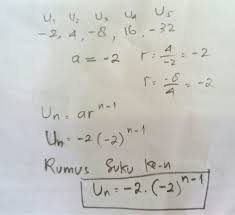 U₁ U₂ U₃ U₄ U₅
-2, 4, -8, 16, -32
a = -2 r = 4/-2 = -2
r = -8/4 = -2
Uₙ = arⁿ⁻¹
Uₙ = -2(-2)ⁿ⁻¹
Rumus Suku ke-n
Uₙ = -2 . (-2)ⁿ⁻¹